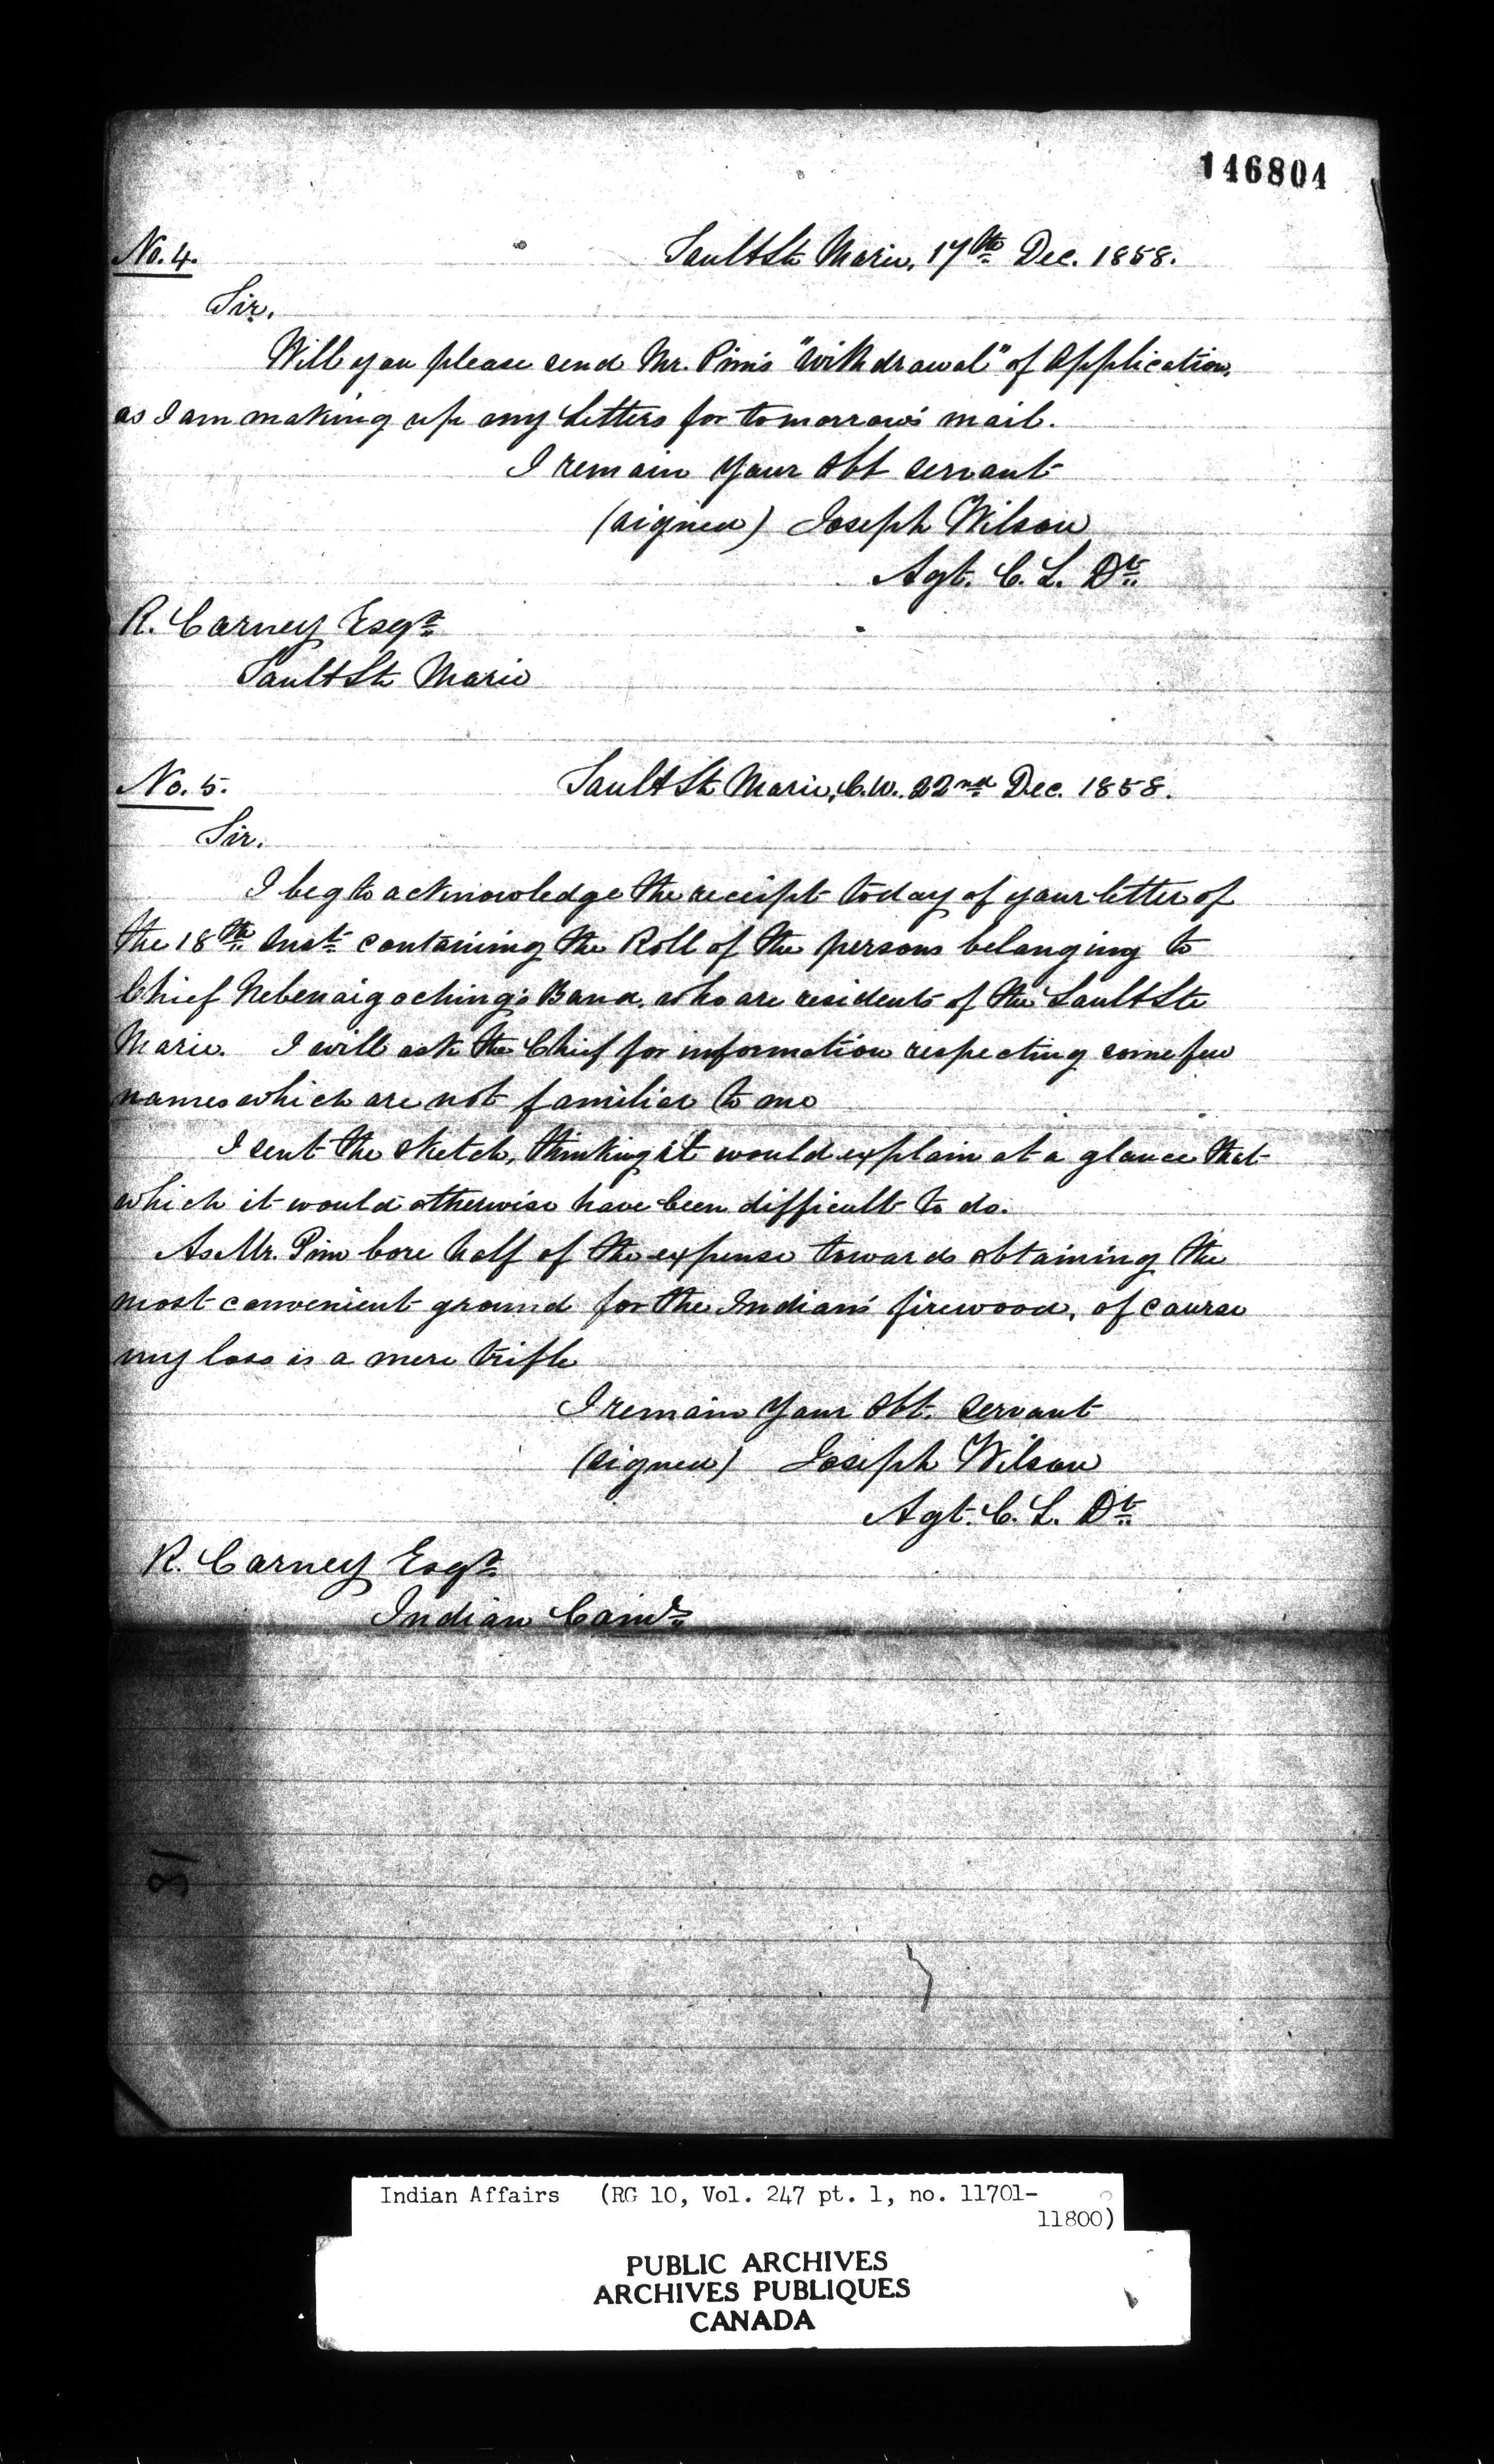 146804
No. 4.
Sault Ste Marie, 17th Dec. 1858.
Sir,
Will you please send Mr. Pim's "Withdrawal" of Application,
as I am making up my letters for tomorrow's mail.
I remain your Obt servant
(signed) Joseph Wilson
Agt. C. L. Dt.
R. Carney Esqr.
Sault Ste Marie
No. 5.
Sault Ste Marie, C.W. 22nd Dec. 1858.
Sir.
I beg to acknowledge the receipt today of your letter of
the 18th Inst. containing the Roll of the persons belonging to
Chief Nebenaigoching's Band, who are residents of the Sault Ste
Marie. I will ask the Chief for information respecting some few
names which are not familiar to me
I sent the sketch, thinking it would explain at a glance that
which it would otherwise have been difficult to do.
As Mr. Pim bore half of the expense towards obtaining the
most convenient ground for the Indians' firewood, of course
my loss is a mere trifle
I remain your Obt. Servant
(signed) Joseph Wilson
Agt. C. L. Dt.
R. Carney Esqr.
Indian Comr.
18
Indian Affairs (RG 10, Vol. 247 pt. 1, no. 11701-
11800)
PUBLIC ARCHIVES
ARCHIVES PUBLIQUES
CANADA